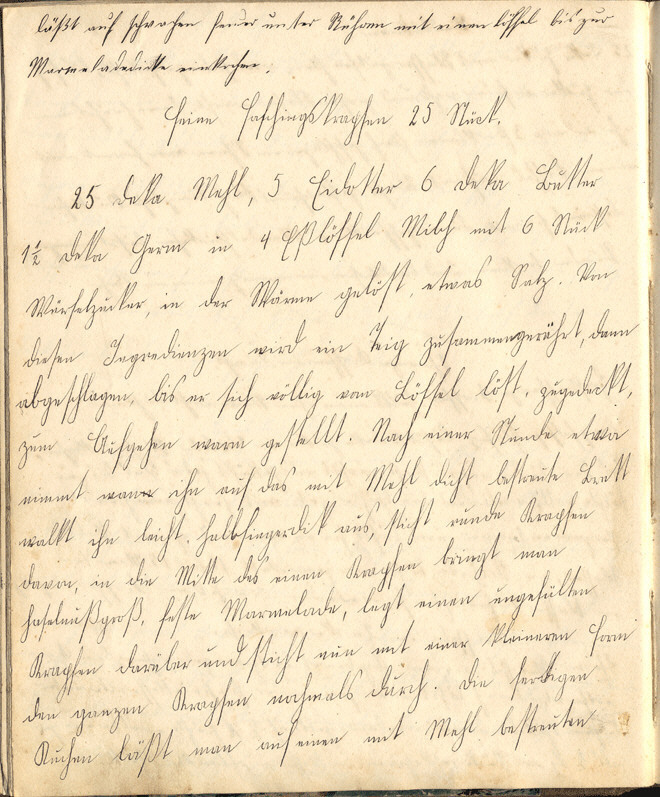 läßt auf schwachen feuer unter Rühren mit einen löffel bis zur
Marmeladedicke einkochen.
Feine Faschingskrapfen 25 Stück.
25 deka Mehl, 5 Eidotter 6 deka Butter
1½ deka Germ in 4 Eßlöffel Milch mit 6 Stück
Würfelzucker, in der Wärme gelöst, etwas Salz. Von
diesen Ingredienzen wird ein Teig zusammengerührt, dann
abgeschlagen, bis er sich völlig vom Löffel löst, zugedeckt,
zum Aufgehen warm gestellt. Nach einer Stunde etwa
nimmt man ihn auf das mit Mehl dicht bestreute Brett
walkt ihn leicht halbfingerdik aus, sticht runde Krapfen
davon, in die Mitte des einen Krapfen bringt man
haselnußgroß, feste Marmelade, legt einen ungefülten
Krapfen darüber und sticht nun mit einer kleineren Form
den ganzen Krapfen nochmals durch. Die fertigen
Kuchen läßt man auf einen mit Mehl bestreuten